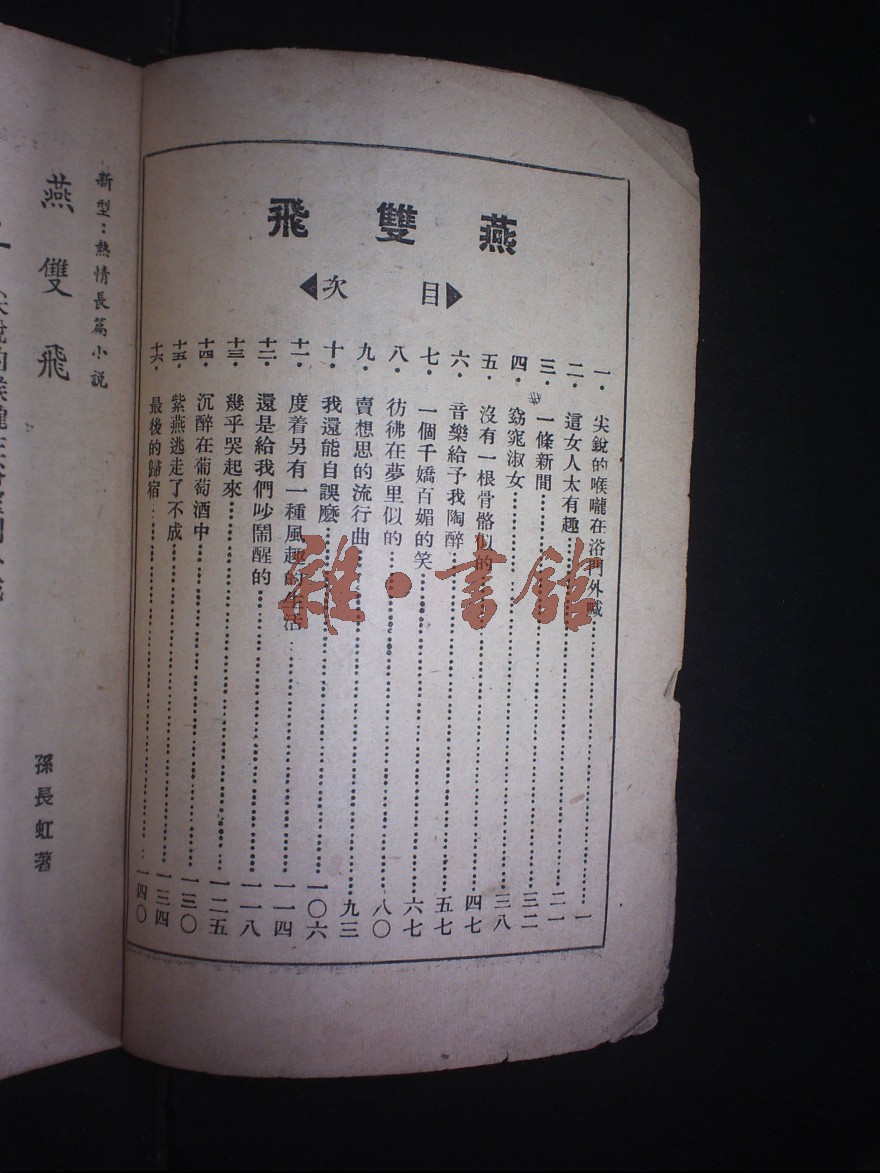 燕雙飛
目次
一·尖銳的喉嚨在浴門外喊 一
二·這女人太有趣 二一
三·一條新聞 三二
四·窈窕淑女 三八
五·沒有一根骨骼似的 四七
六·音樂給予我陶醉 五七
七·一個千嬌百媚的笑 六七
八·彷彿在夢里似的 八〇
九·賣想思的流行曲 九三
十·我還能自誤麼 一〇六
十一·度着另有一種風趣的生活 一一四
十二·還是給我們吵鬧醒的 一一八
十三·幾乎哭起來 一二五
十四·沉醉在葡萄酒中 一三〇
十五·紫燕逃走了不成 一三四
十六·最後的歸宿 一四〇
新型：熱情長篇小說
燕雙飛
孫長虹著
雜·書館